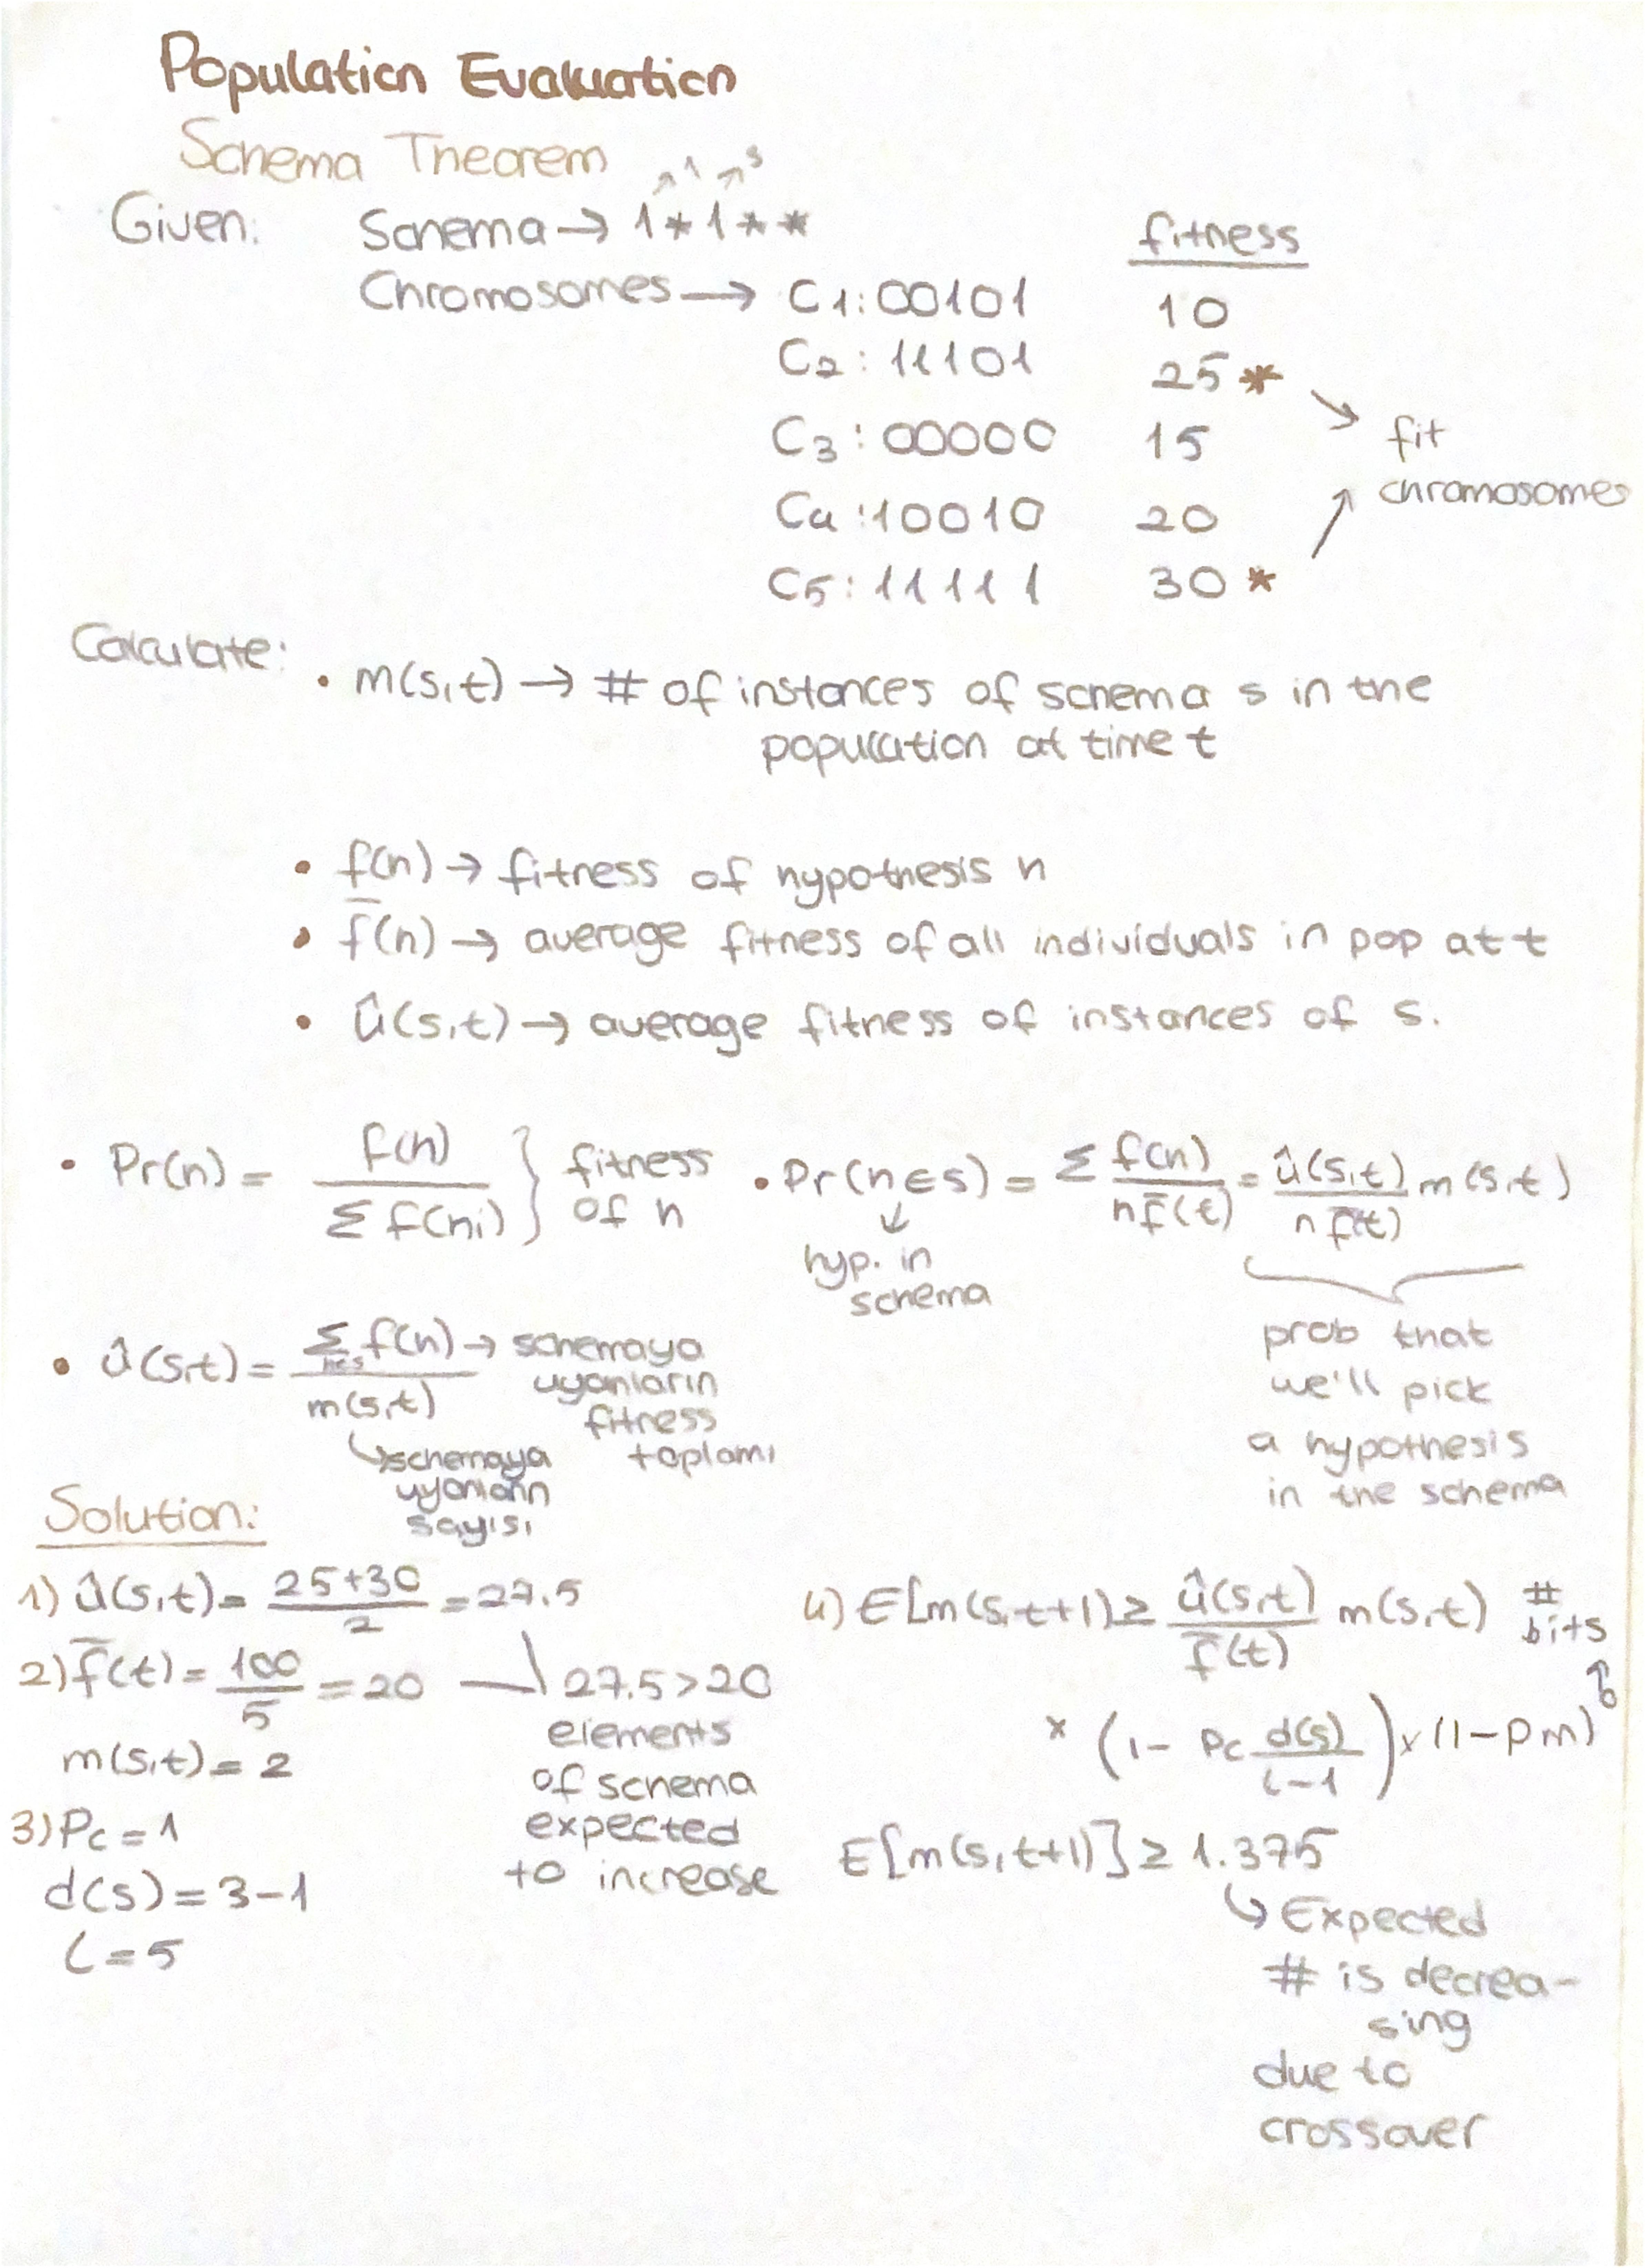 Population Evaluation
Schema Theorem
1 3
Given: Schema → 1*1** fitness
Chromosomes → C1: 00101 10
C2: 11101 25 *
C3: 00000 15 fit
C4: 10010 20 chromosomes
C5: 11111 30 *
Calculate: • m(s,t) → # of instances of schema s in the
population at time t
• f(h) → fitness of hypothesis h
• f̄(h) → average fitness of all individuals in pop at t
• û(s,t) → average fitness of instances of s.
• Pr(h) = f(h) / Σ f(hi) } fitness of h
• Pr(h∈s) = Σ f(h) / n f̄(t) = û(s,t) / n f̄(t) m(s,t)
↓
hyp. in
schema
prob that
we'll pick
a hypothesis
in the schema
• û(s,t) = Σ h∈s f(h) / m(s,t)
→ schemaya
uyanların
fitness
toplamı
↳ schemaya
uyanların
sayısı
Solution:
1) û(s,t) = 25+30 / 2 = 27.5
2) f̄(t) = 100 / 5 = 20
m(s,t) = 2
27.5 > 20
elements
of schema
expected
to increase
3) Pc = 1
d(s) = 3-1
l = 5
4) E[m(s,t+1) ≥ û(s,t) / f̄(t) m(s,t)
# bits
x (1 - Pc d(s) / l-1) x (1-Pm)
E[m(s,t+1)] ≥ 1.375
↳ Expected
# is decrea-
sing
due to
crossover